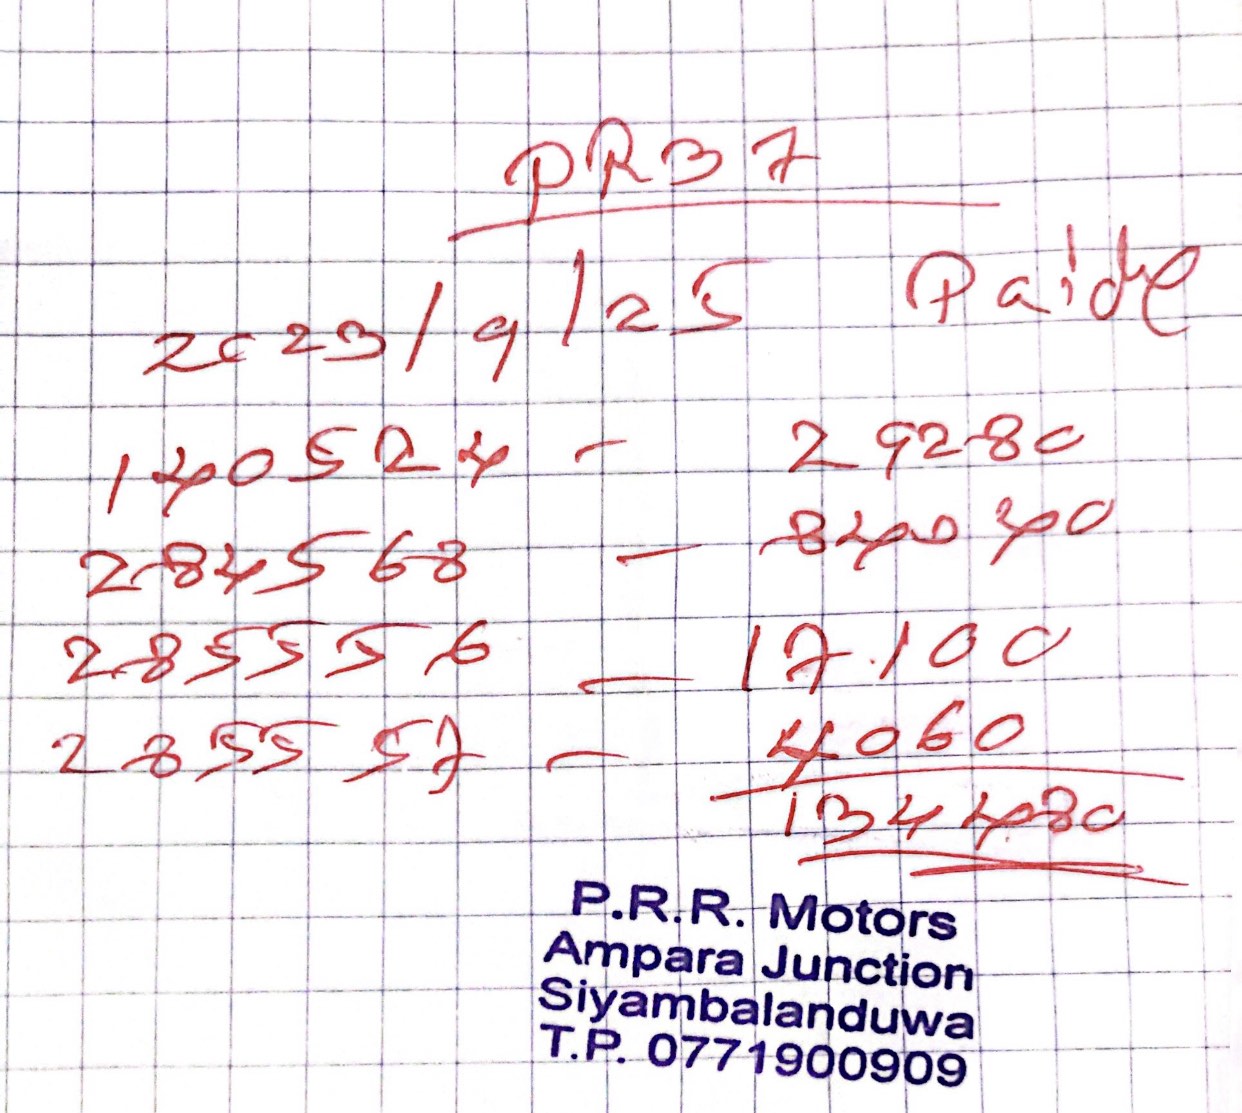 PR37
2023/9/25 Paide
1405524 - 29280
284568 - 84040
285556 - 17.100
285557 - 4060
134480
P.R.R. Motors
Ampara Junction
Siyambalanduwa
T.P. 0771900909